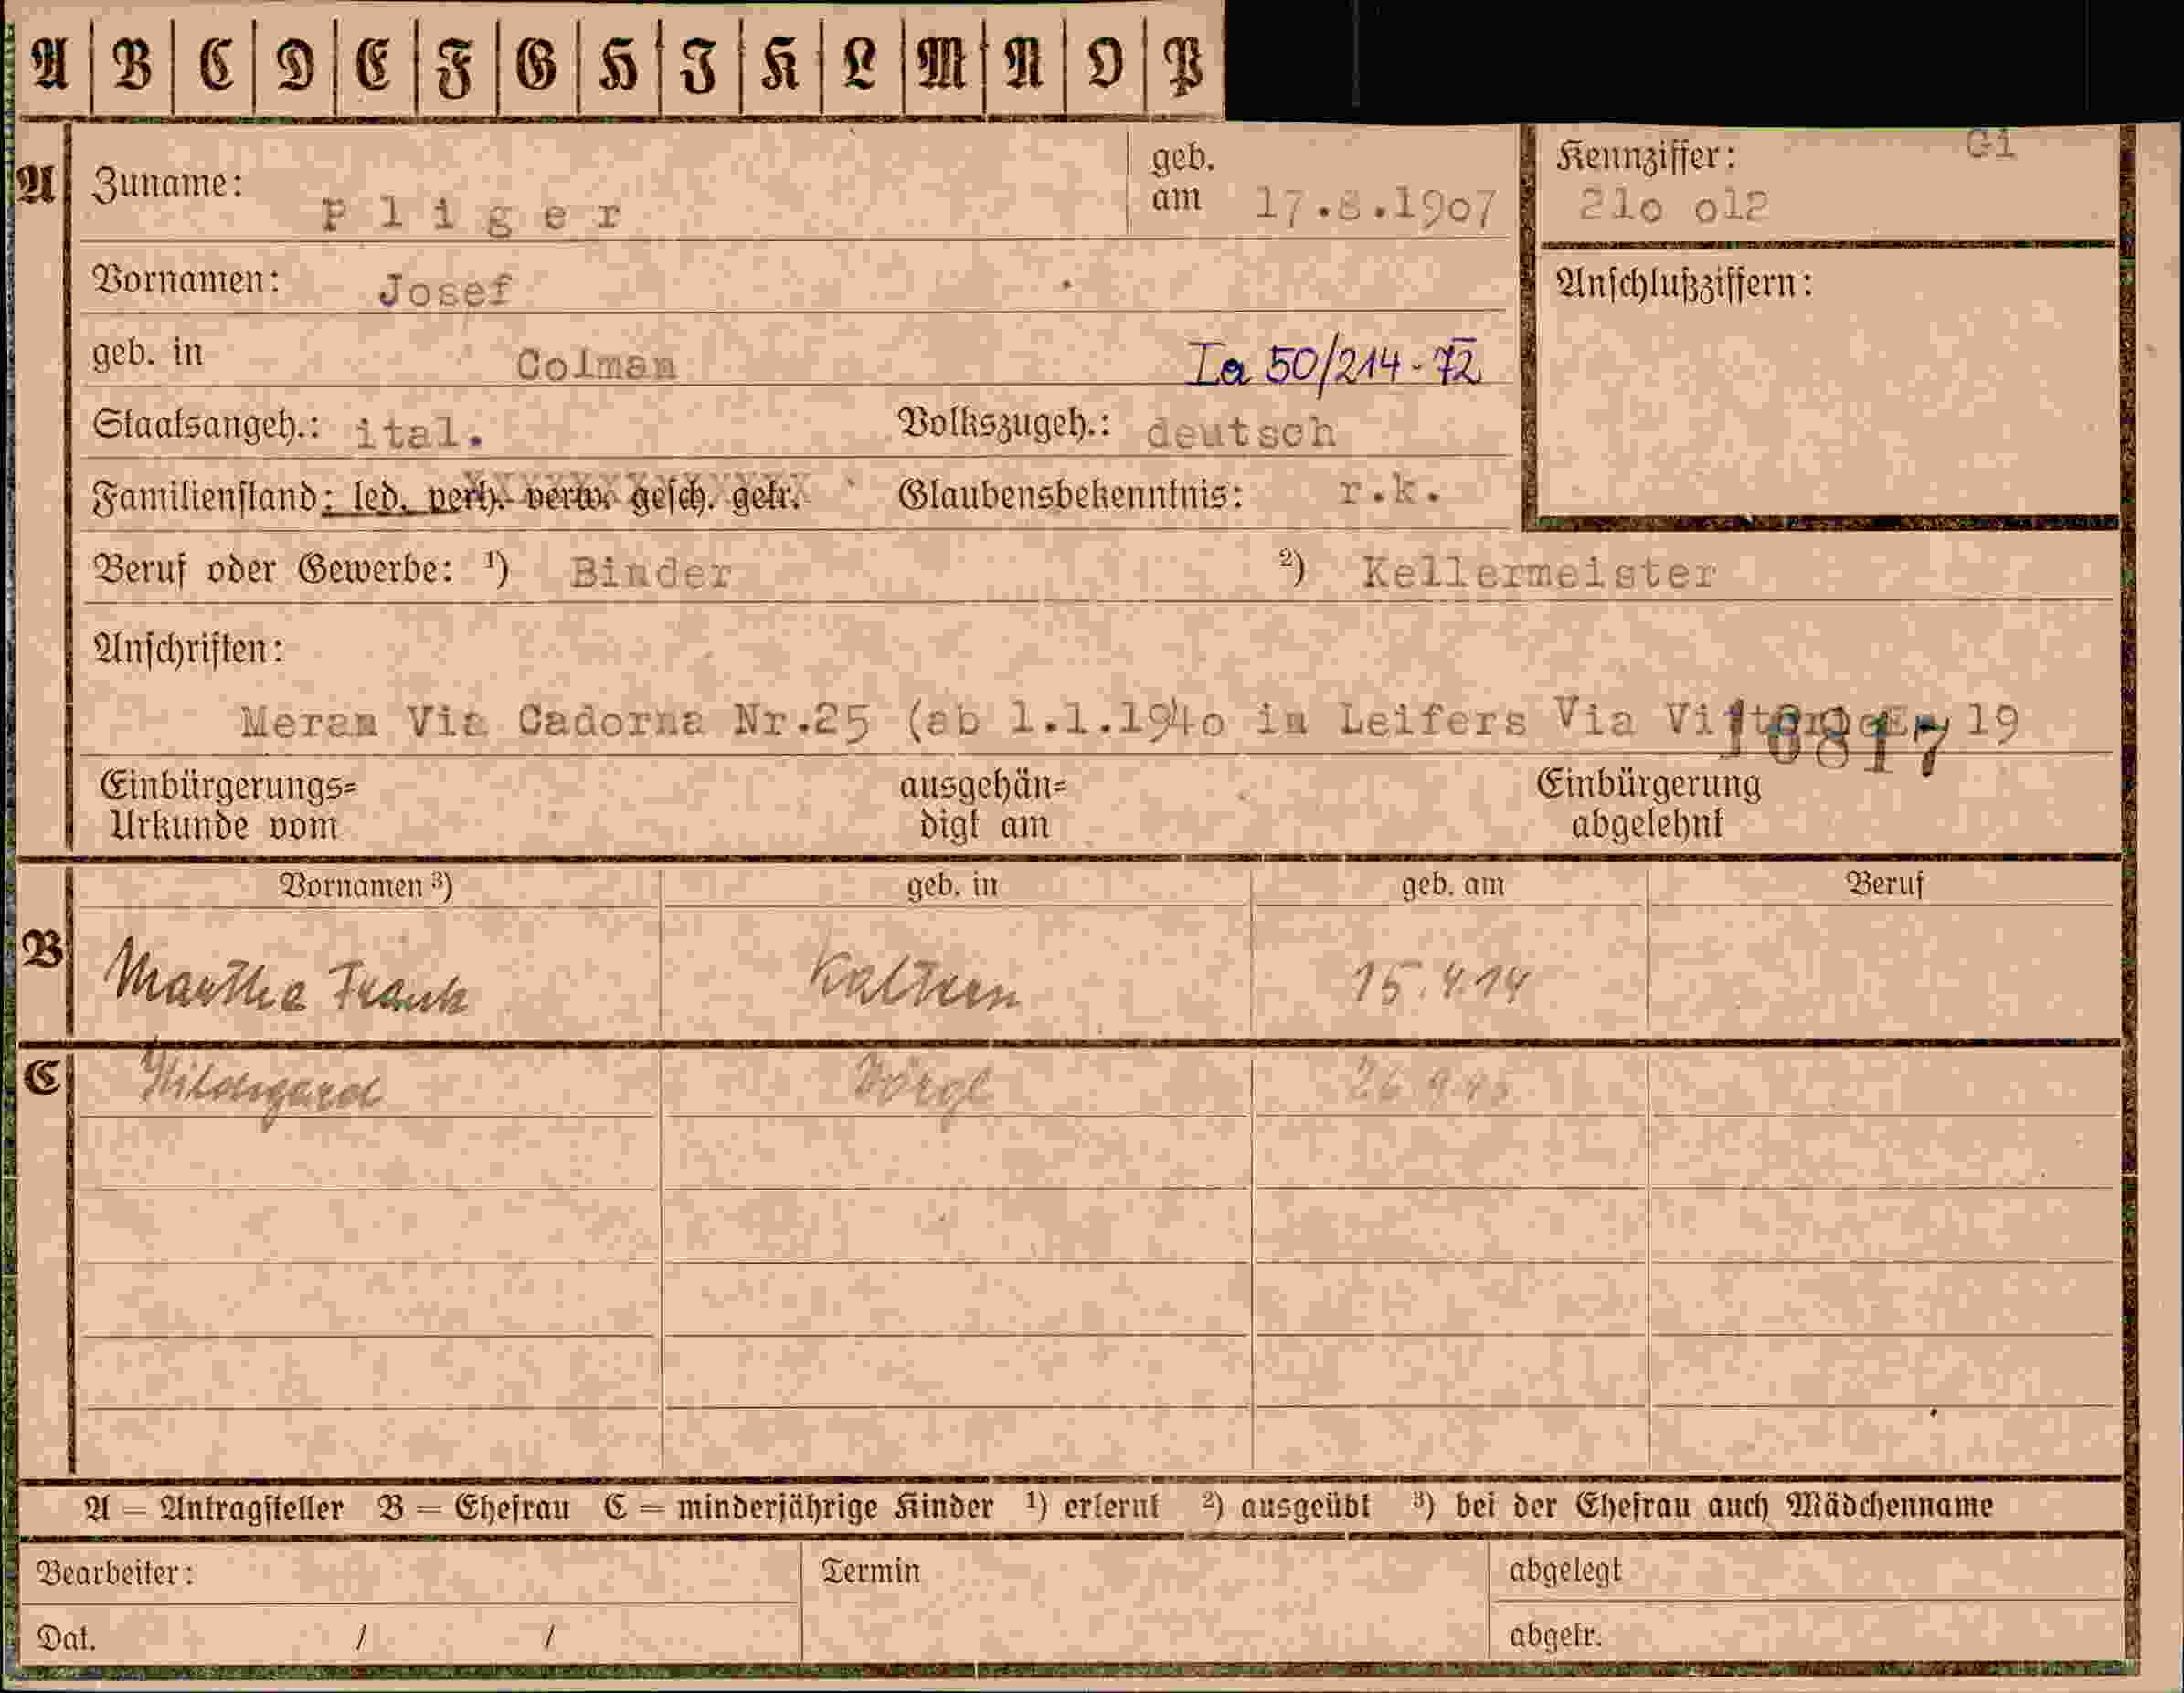 A B C D E F G H I K L M N O P
A Zuname: Pliger geb. am 17.8.1907 Kennziffer: G1 21o o12
Vornamen: Josef Anschlußziffern:
geb. in Colman Ia 50/214-72
Staatsangeh.: ital. Volkszugeh.: deutsch
Familienstand: led. verh. verw. gesch. getr. Glaubensbekenntnis: r.k.
Beruf oder Gewerbe: ¹) Binder ²) Kellermeister
Anschriften:
Meran Via Cadorna Nr.25 (ab 1.1.194o in Leifers Via 19
16817
Einbürgerungs= Urkunde vom ausgehän= digt am Einbürgerung abgelehnt
Vornamen ³) geb. in geb. am Beruf
B Martha Frank Kaltern 15.4.14
C Hildegard Wörgl 26.9.45
A = Antragsteller B = Ehefrau C = minderjährige Kinder ¹) erlernt ²) ausgeübt ³) bei der Ehefrau auch Mädchenname
Bearbeiter: Termin abgelegt
Dat. / / abgetr.